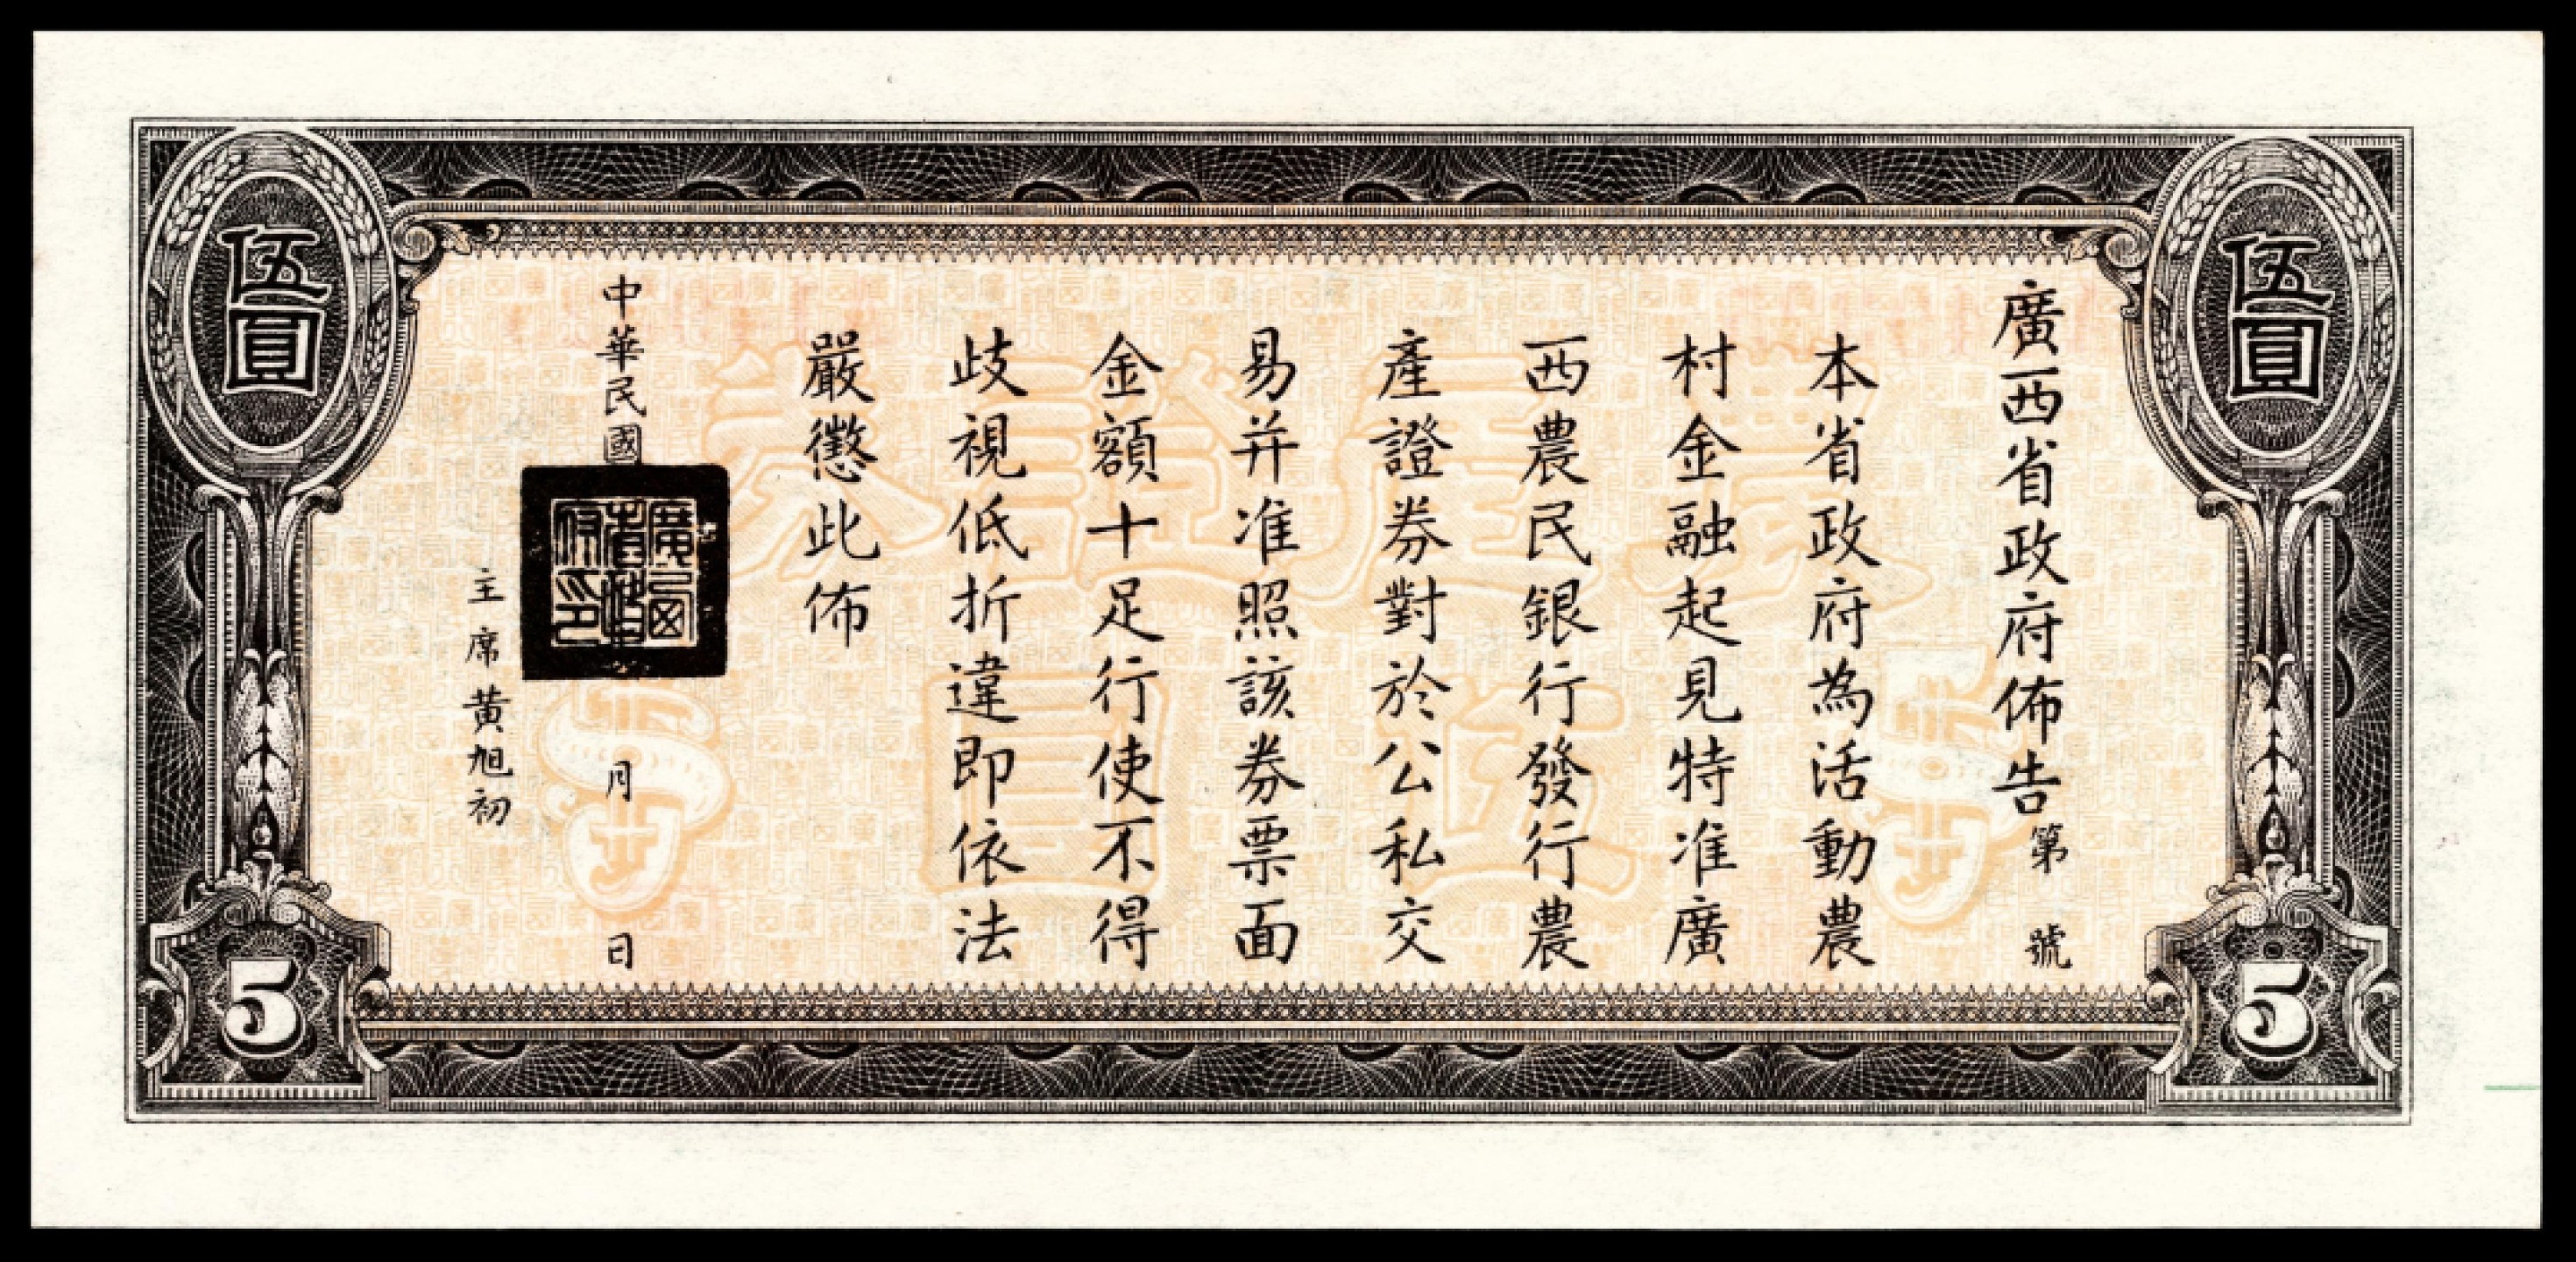 廣西省政府佈告第　號
本省政府為活動農
村金融起見特准廣
西農民銀行發行農
產證券對於公私交
易并准照該券票面
金額十足行使不得
歧視低折違即依法
嚴懲此佈
中華民國　月　日
主席黃旭初
廣西省政府印
伍圓
伍圓
農產證券
伍圓
5
5